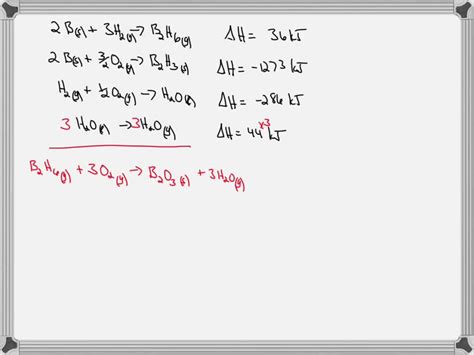 2B(s) + 3H₂(g) → B₂H₆(g) ΔH = 36 kJ
2B(s) + 3/2 O₂(g) → B₂H₃(s) ΔH = -1273 kJ
H₂(g) + 1/2 O₂(g) → H₂O(l) ΔH = -286 kJ
3 H₂O(l) → 3H₂O(g) ΔH = 44 ×3 kJ
B₂H₆(g) + 3O₂(g) → B₂O₃(s) + 3H₂O(g)